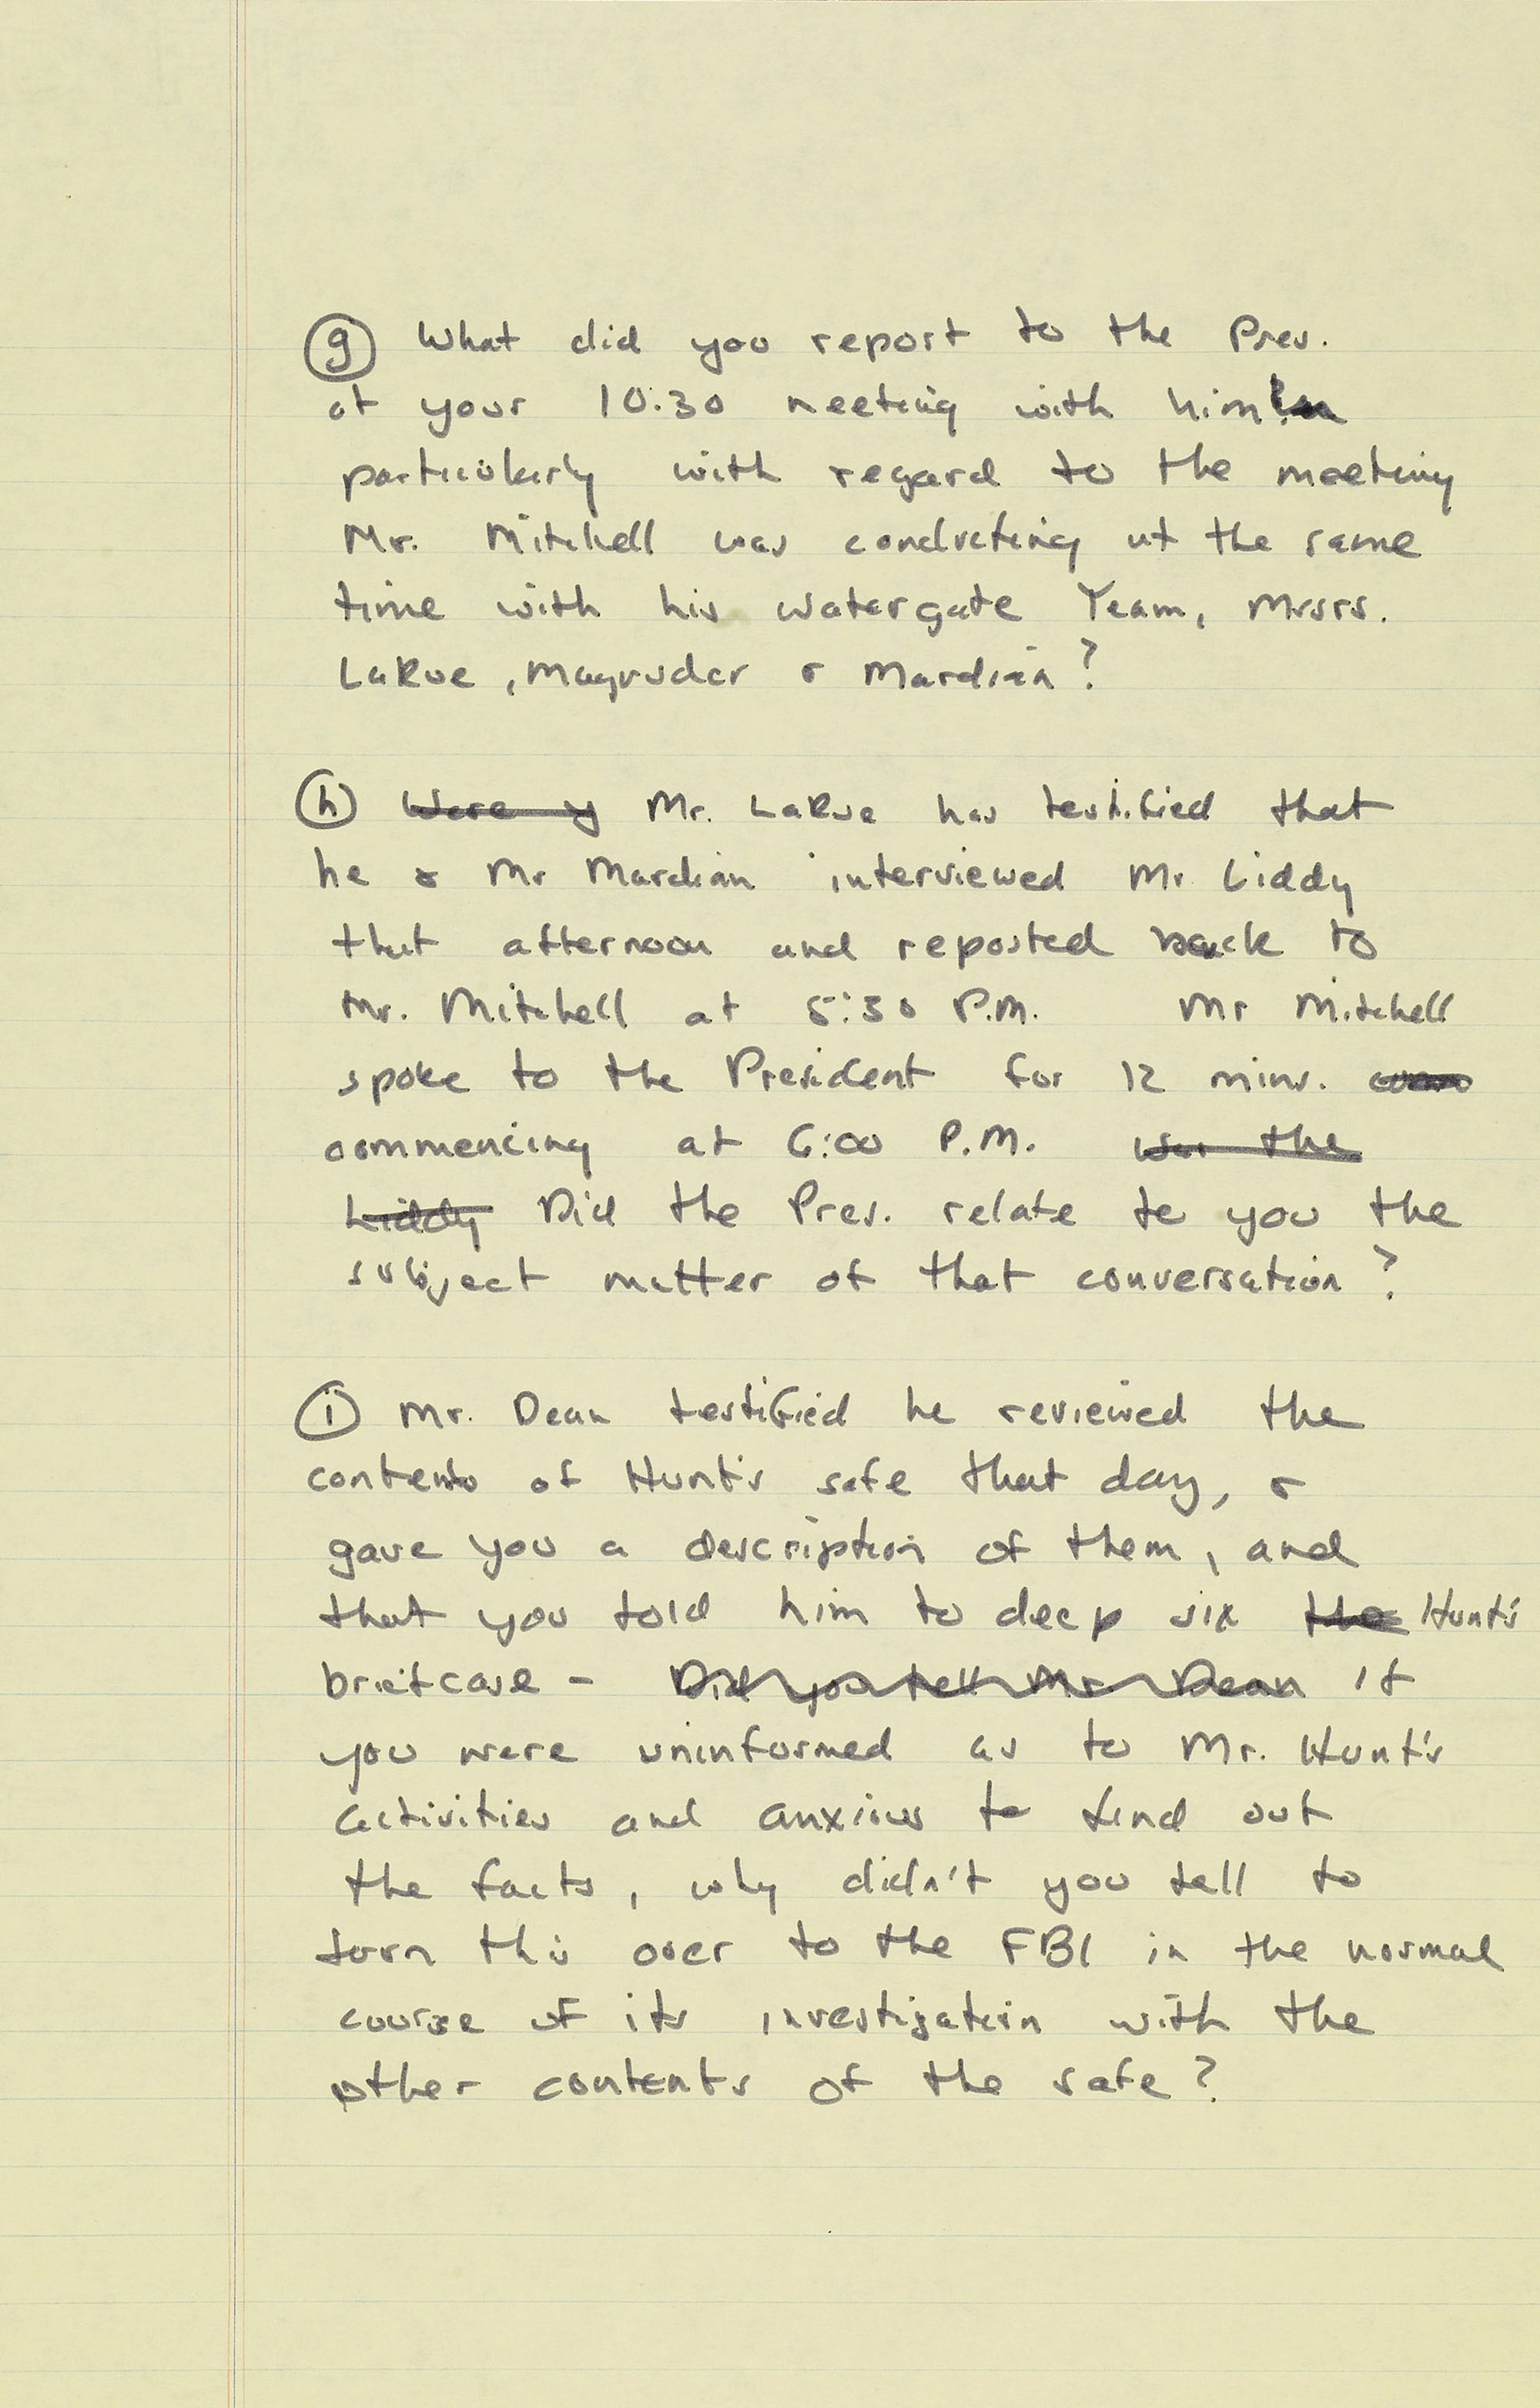 (g) What did you report to the Pres.
at your 10:30 meeting with him
particularly with regard to the meeting
Mr. Mitchell was conducting at the same
time with his Watergate Team, Mssrs.
LaRue, Magruder & Mardian?
(h) Were y Mr. LaRue has testified that
he & Mr Mardian interviewed Mr. Liddy
that afternoon and reported back to
Mr. Mitchell at 5:30 P.M. Mr Mitchell
spoke to the President for 12 mins.
commencing at 6:00 P.M. Was the
Liddy Did the Pres. relate to you the
subject matter of that conversation?
(i) Mr. Dean testified he reviewed the
contents of Hunt's safe that day, &
gave you a description of them, and
that you told him to deep six the Hunt's
briefcase - Did you tell Mr. Dean If
you were uninformed as to Mr. Hunt's
activities and anxious to find out
the facts, why didn't you tell to
turn this over to the FBI in the normal
course of its investigation with the
other contents of the safe?